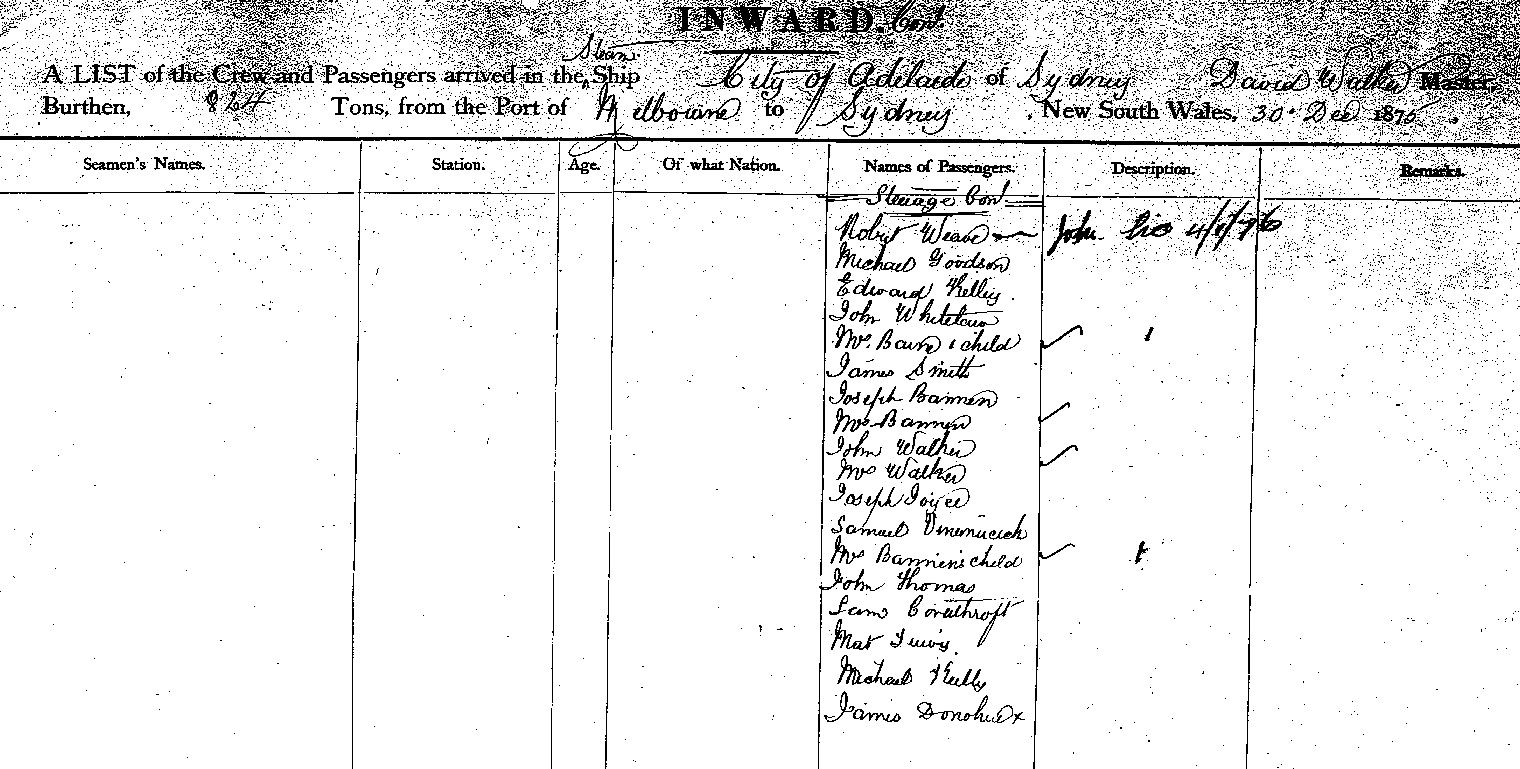 INWARD. Cont
Steam
A LIST of the Crew and Passengers arrived in the Ship City of Adelaide of Sydney David Walker Master,
Burthen, 824 Tons, from the Port of Melbourne to Sydney, New South Wales, 30. Dec 1875.
Seamen's Names. Station. Age. Of what Nation. Names of Passengers. Description. Remarks.
Steerage Cont
Robt Weave 4/1/76
Michael Goodson
Edward Kelly
John Whitelaw
Mrs. child 1
James Smith
Joseph Bannen
Mrs Bannen
John Walker
Mrs Walker
Joseph Joyce
Samuel
Mrs Bannen's child 1
John Thomas
Sam
Mat
Michael Kelly
James Donohue x